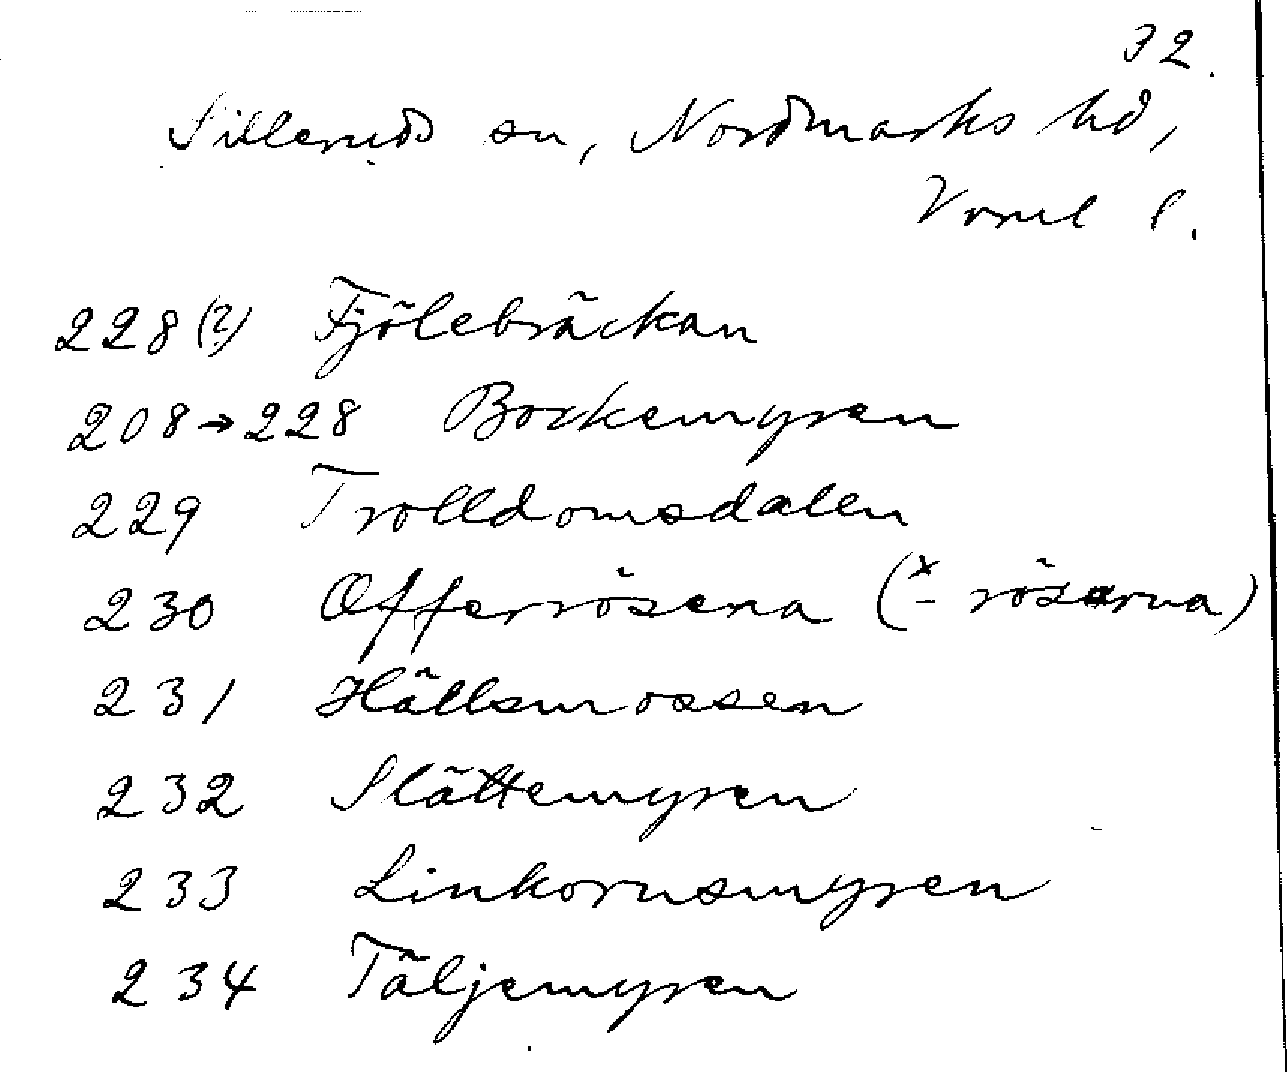 32.
Silleruds sn, Nordmarks hd,
Värml l.
228(?) Fjölebräckan
208→228 Bockemyren
229 Trolldomsdalen
230 Offerrösena (x - rösarna)
231 Hällsmossen
232 Slåttemyren
233 Linkornsmyren
234 Täljemyren